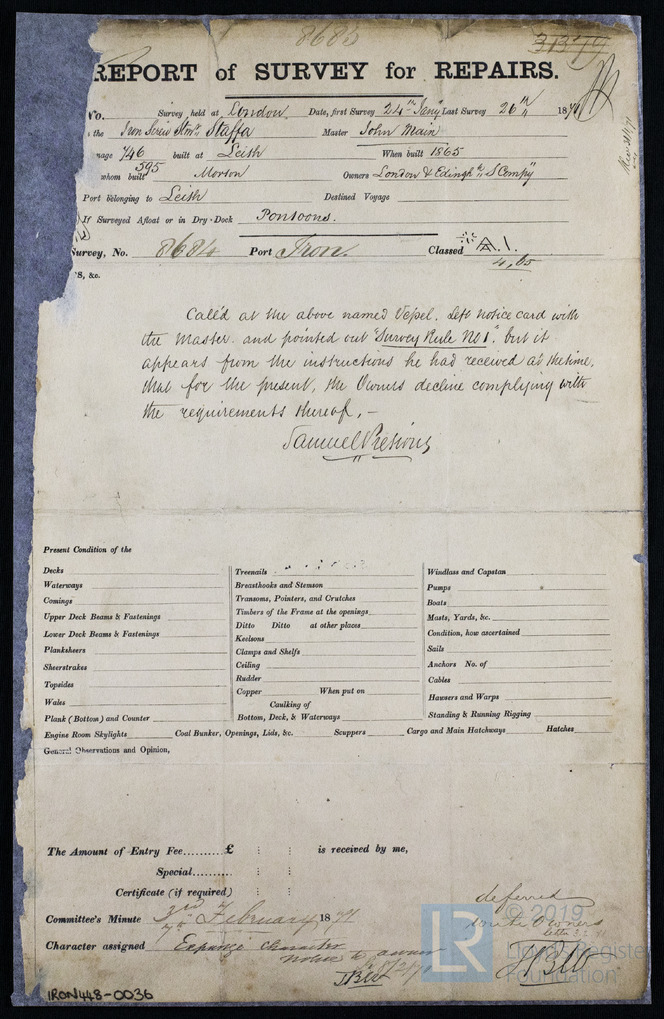 8685
REPORT of SURVEY for REPAIRS.
No. Survey held at London Date, first Survey 24th Jany Last Survey 26th 187
the Iron Screw Stmr Staffa Master John Main
nage 746 built at Leith When built 1865
595
whom built Morton Owners London & Edingh S Compy
Port belonging to Leith Destined Voyage
If Surveyed Afloat or in Dry-Dock Pontoons.
Survey, No. 8684 Port Iron. Classed A.1.
4,65
s, &c.
Called at the above named Vessel. Left notice card with
the Master. and pointed out "Survey Rule No 1". but it
appears from the instructions he had received at the time,
that for the present, the Owners decline complying with
the requirements thereof,-
Samuel Pretious
Present Condition of the
Decks
Waterways
Comings
Upper Deck Beams & Fastenings
Lower Deck Beams & Fastenings
Planksheers
Sheerstrakes
Topsides
Wales
Plank (Bottom) and Counter
Treenails
Breasthooks and Stemson
Transoms, Pointers, and Crutches
Timbers of the Frame at the openings
Ditto Ditto at other places
Keelsons
Clamps and Shelfs
Ceiling
Rudder
Copper When put on
Caulking of
Bottom, Deck, & Waterways
Windlass and Capstan
Pumps
Boats
Masts, Yards, &c.
Condition, how ascertained
Sails
Anchors No. of
Cables
Hawsers and Warps
Standing & Running Rigging
Engine Room Skylights Coal Bunker, Openings, Lids, &c. Scuppers Cargo and Main Hatchways Hatches
General Observations and Opinion,
The Amount of Entry Fee.........£ : : is received by me,
Special...... : :
Certificate (if required) : :
deferred
write Owners
Committee's Minute 3rd February 1871
7th
Character assigned Expunge character
notice to owner
IRON448-0036
LR © 2019
Lloyd's Register
Foundation